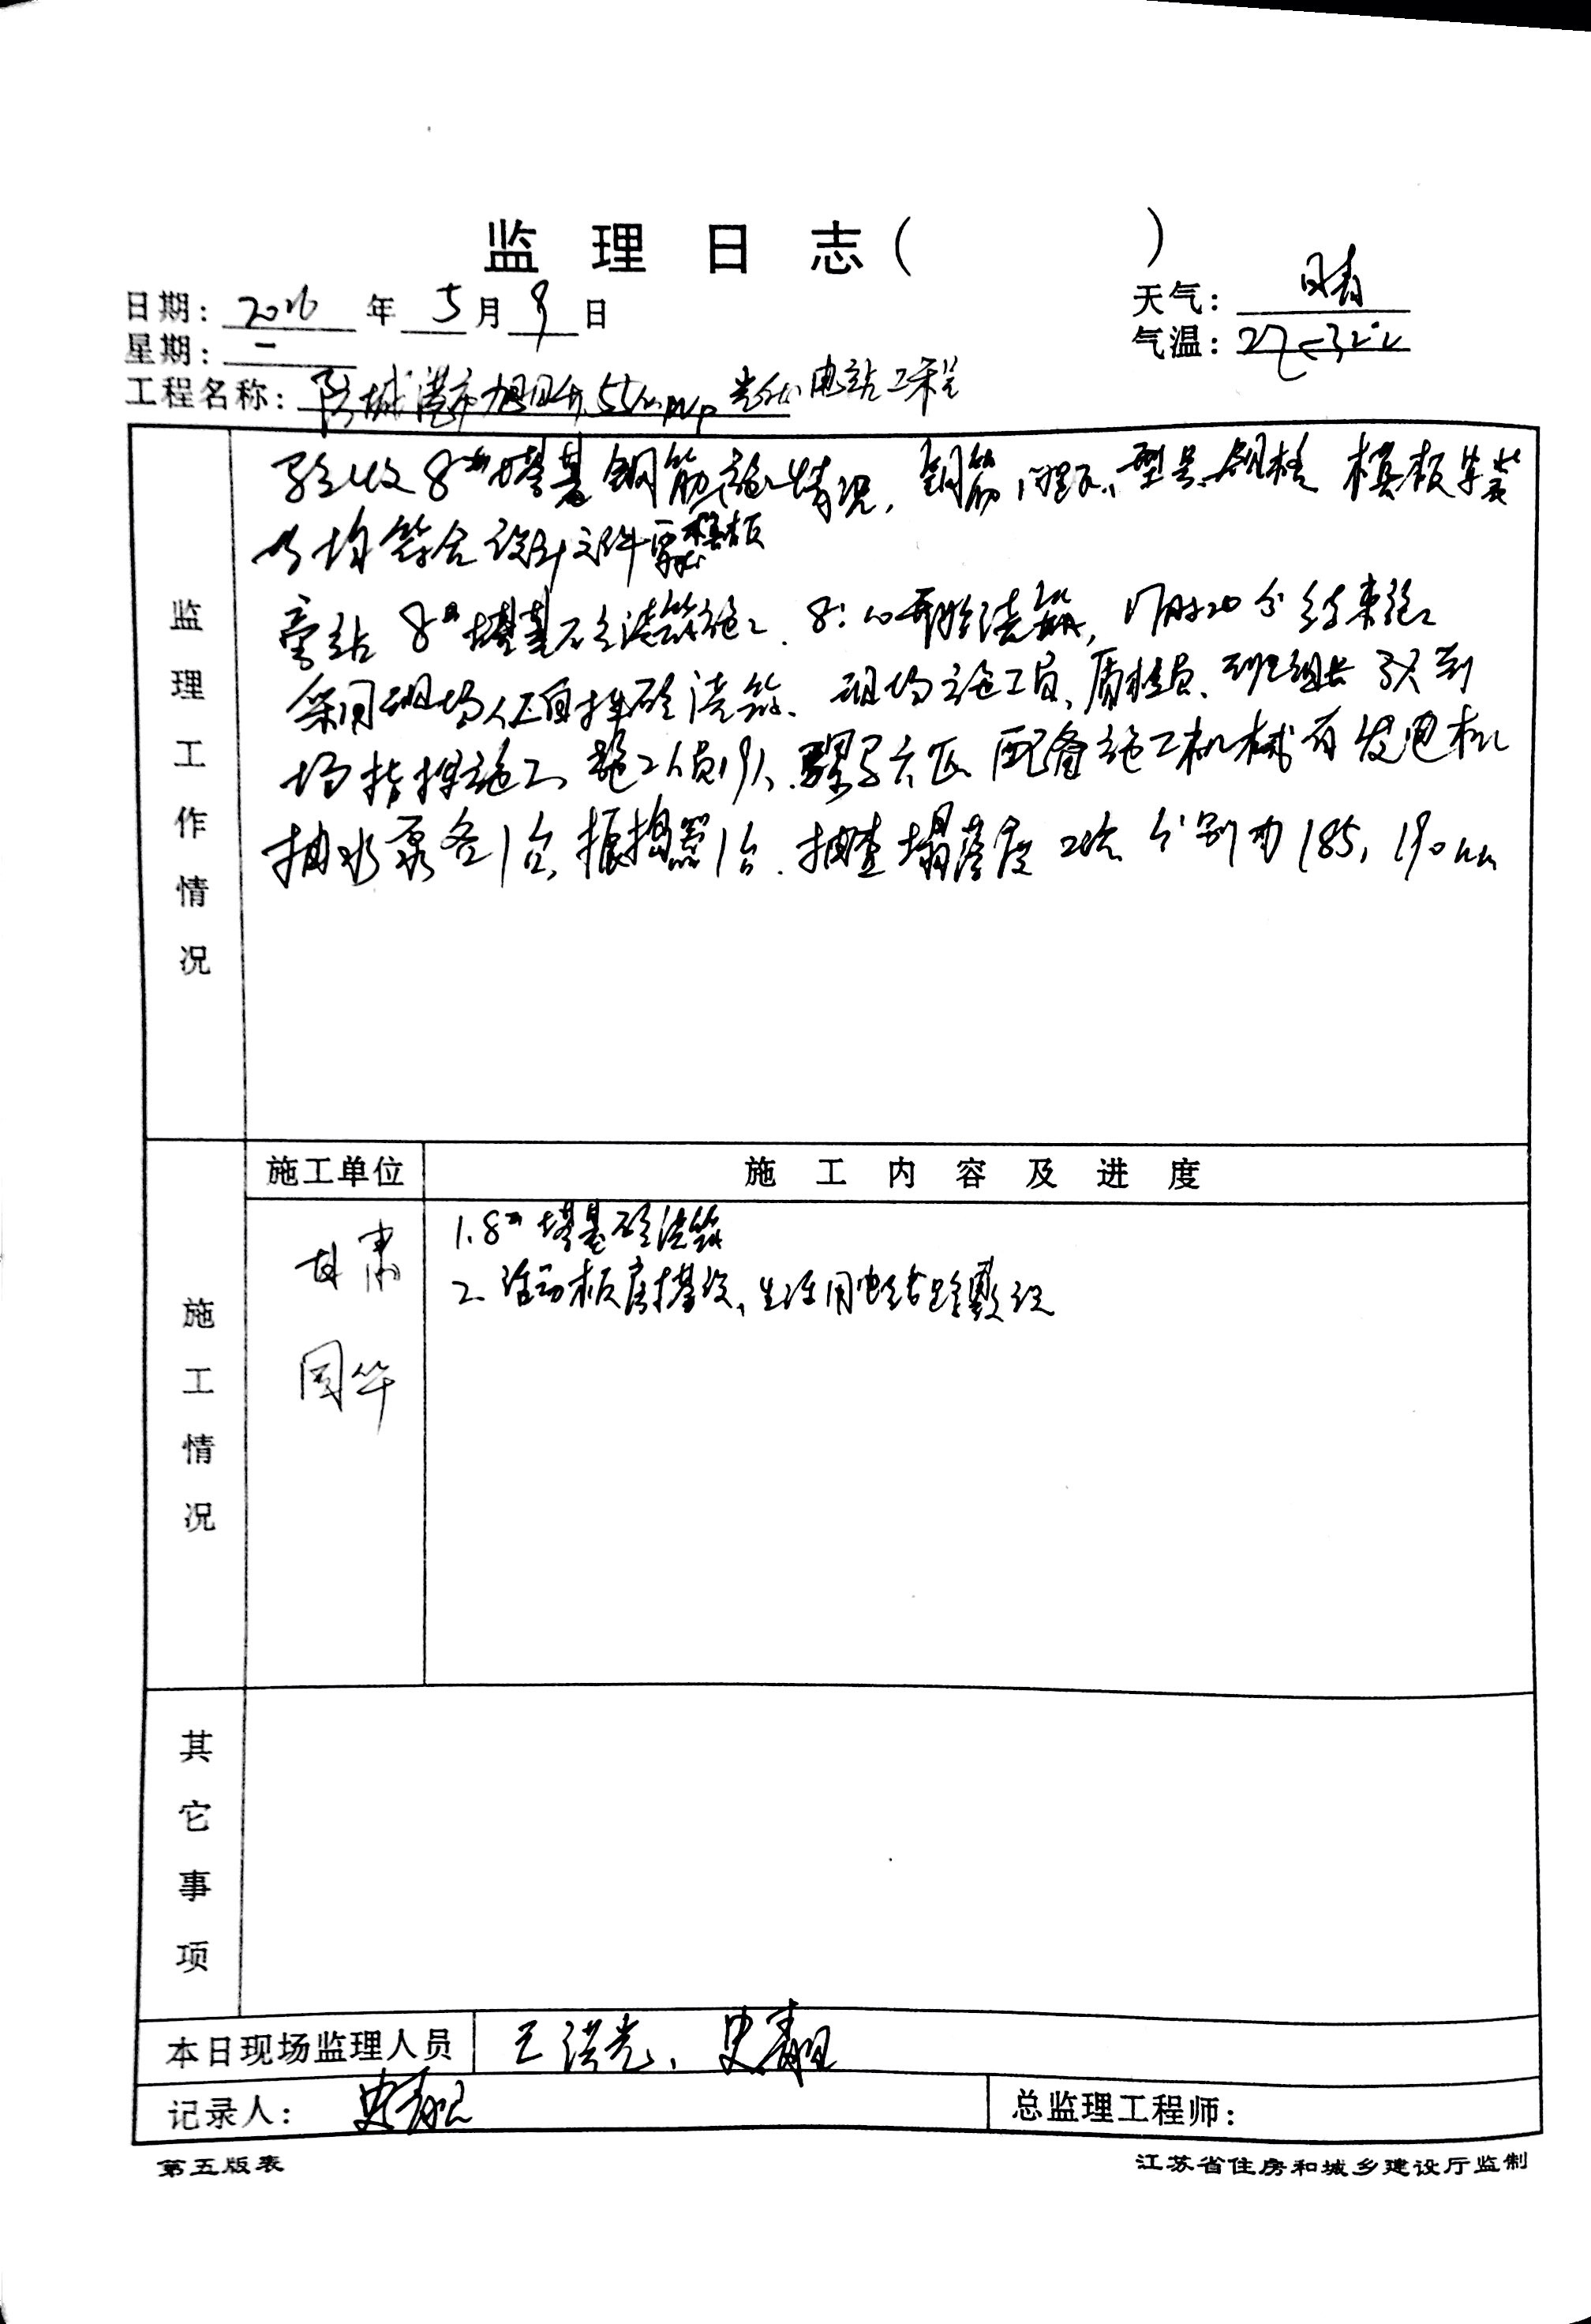 监理日志( )
日期: 2016 年 5 月 9 日
天气: 晴
星期: 一
气温: 27~32℃
工程名称: 防城港市旭日升55MWp光伏电站工程
监理工作情况
验收8#塔基钢筋施工情况,钢筋间距、型号、规格 模板安装
均符合设计文件要求 模板
旁站8#塔基砼浇筑施工.8:00开始浇筑,17时20分结束施工
采用现场 砼浇筑、现场施工员、质检员、班组长 到
场指挥施工、施工人员19人.骡子六匹、配备施工机械有发电机
抽水泵各1台,振捣器1台.抽查塌落度2次 分别为185,190mm
施工情况
施工单位
施工内容及进度
甘肃
国华
1.8#塔基砼浇筑
2.活动板房搭设、生活用电线路敷设
其它事项
本日现场监理人员 王洪光、史
记录人: 史
总监理工程师:
第五版表
江苏省住房和城乡建设厅监制